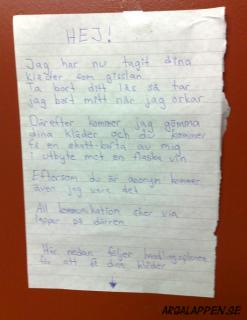 HEJ!
Jag har nu tagit dina
kläder som gisslan
Ta bort ditt lås så tar
jag bort mitt när jag orkar
Därefter kommer jag gömma
dina kläder och du kommer
få en skatt-karta av mig
i utbyte mot en flaska vin
Eftersom du är anonym kommer
även jag vara det
All kommunikation sker via
lappar på dörren
Här nedan följer handlingsplanen
för att få dina kläder
ARGALAPPEN.SE